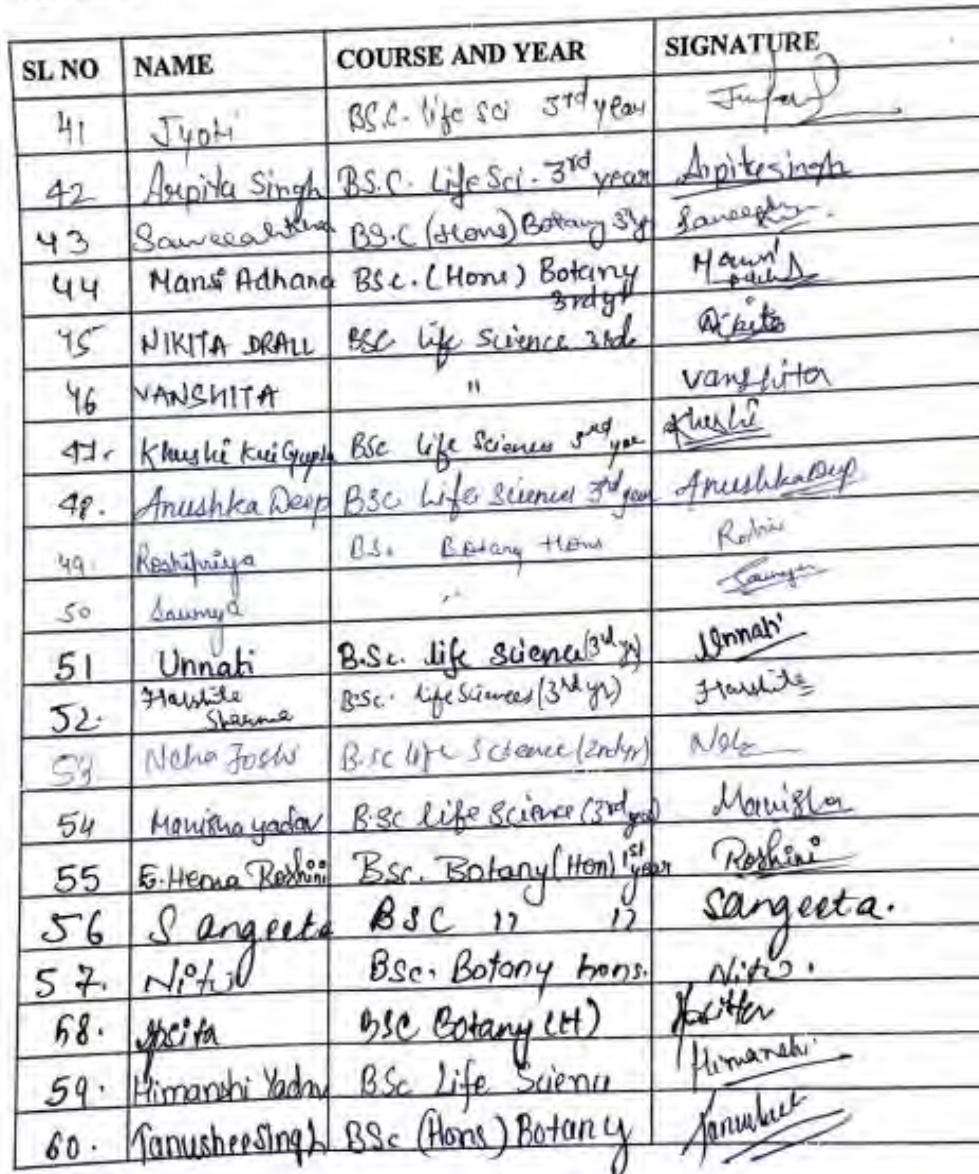 SL NO NAME COURSE AND YEAR SIGNATURE
41 Jyoti BS.C. life sci 3rd year
42 Arpita Singh BS.C. Life Sci. 3rd year Arpitasingh
43 BS.C (Hons) Botany 3rd yr
44 Mansi Adhana BSc. (Hons) Botany 3rd yr Mansi
45 NIKITA DRALL BSC life Science 3rd Nikita
46 VANSHITA " Vanshita
47. Khushi BSc life Science 3rd year Khushi
48. Anushka Deep BSC Life Science 3rd year Anushka Deep
49. Roshipriya BSc Botany Hons Roshi
50 Saumya " Saumya
51 Unnati B.Sc. life science (3rd yr) Unnati
52. Harshita Sharma B.Sc. life Sciences (3rd yr) Harshita
53 Neha Joshi B.sc life Science (2nd yr) Neha
54 Manisha yadav B.SC life Science (3rd year) Manisha
55 E. Hema Roshini Bsc. Botany (Hon) 1st year Roshini
56 Sangeeta BSC 11 11 Sangeeta.
57. Nitu BSc. Botany hons. Nitu.
58. BSC Botany (H)
59. Himanshi Yadav BSc Life Science Himanshi
60. Tanushee Singh BSc (Hons) Botany Tanushee